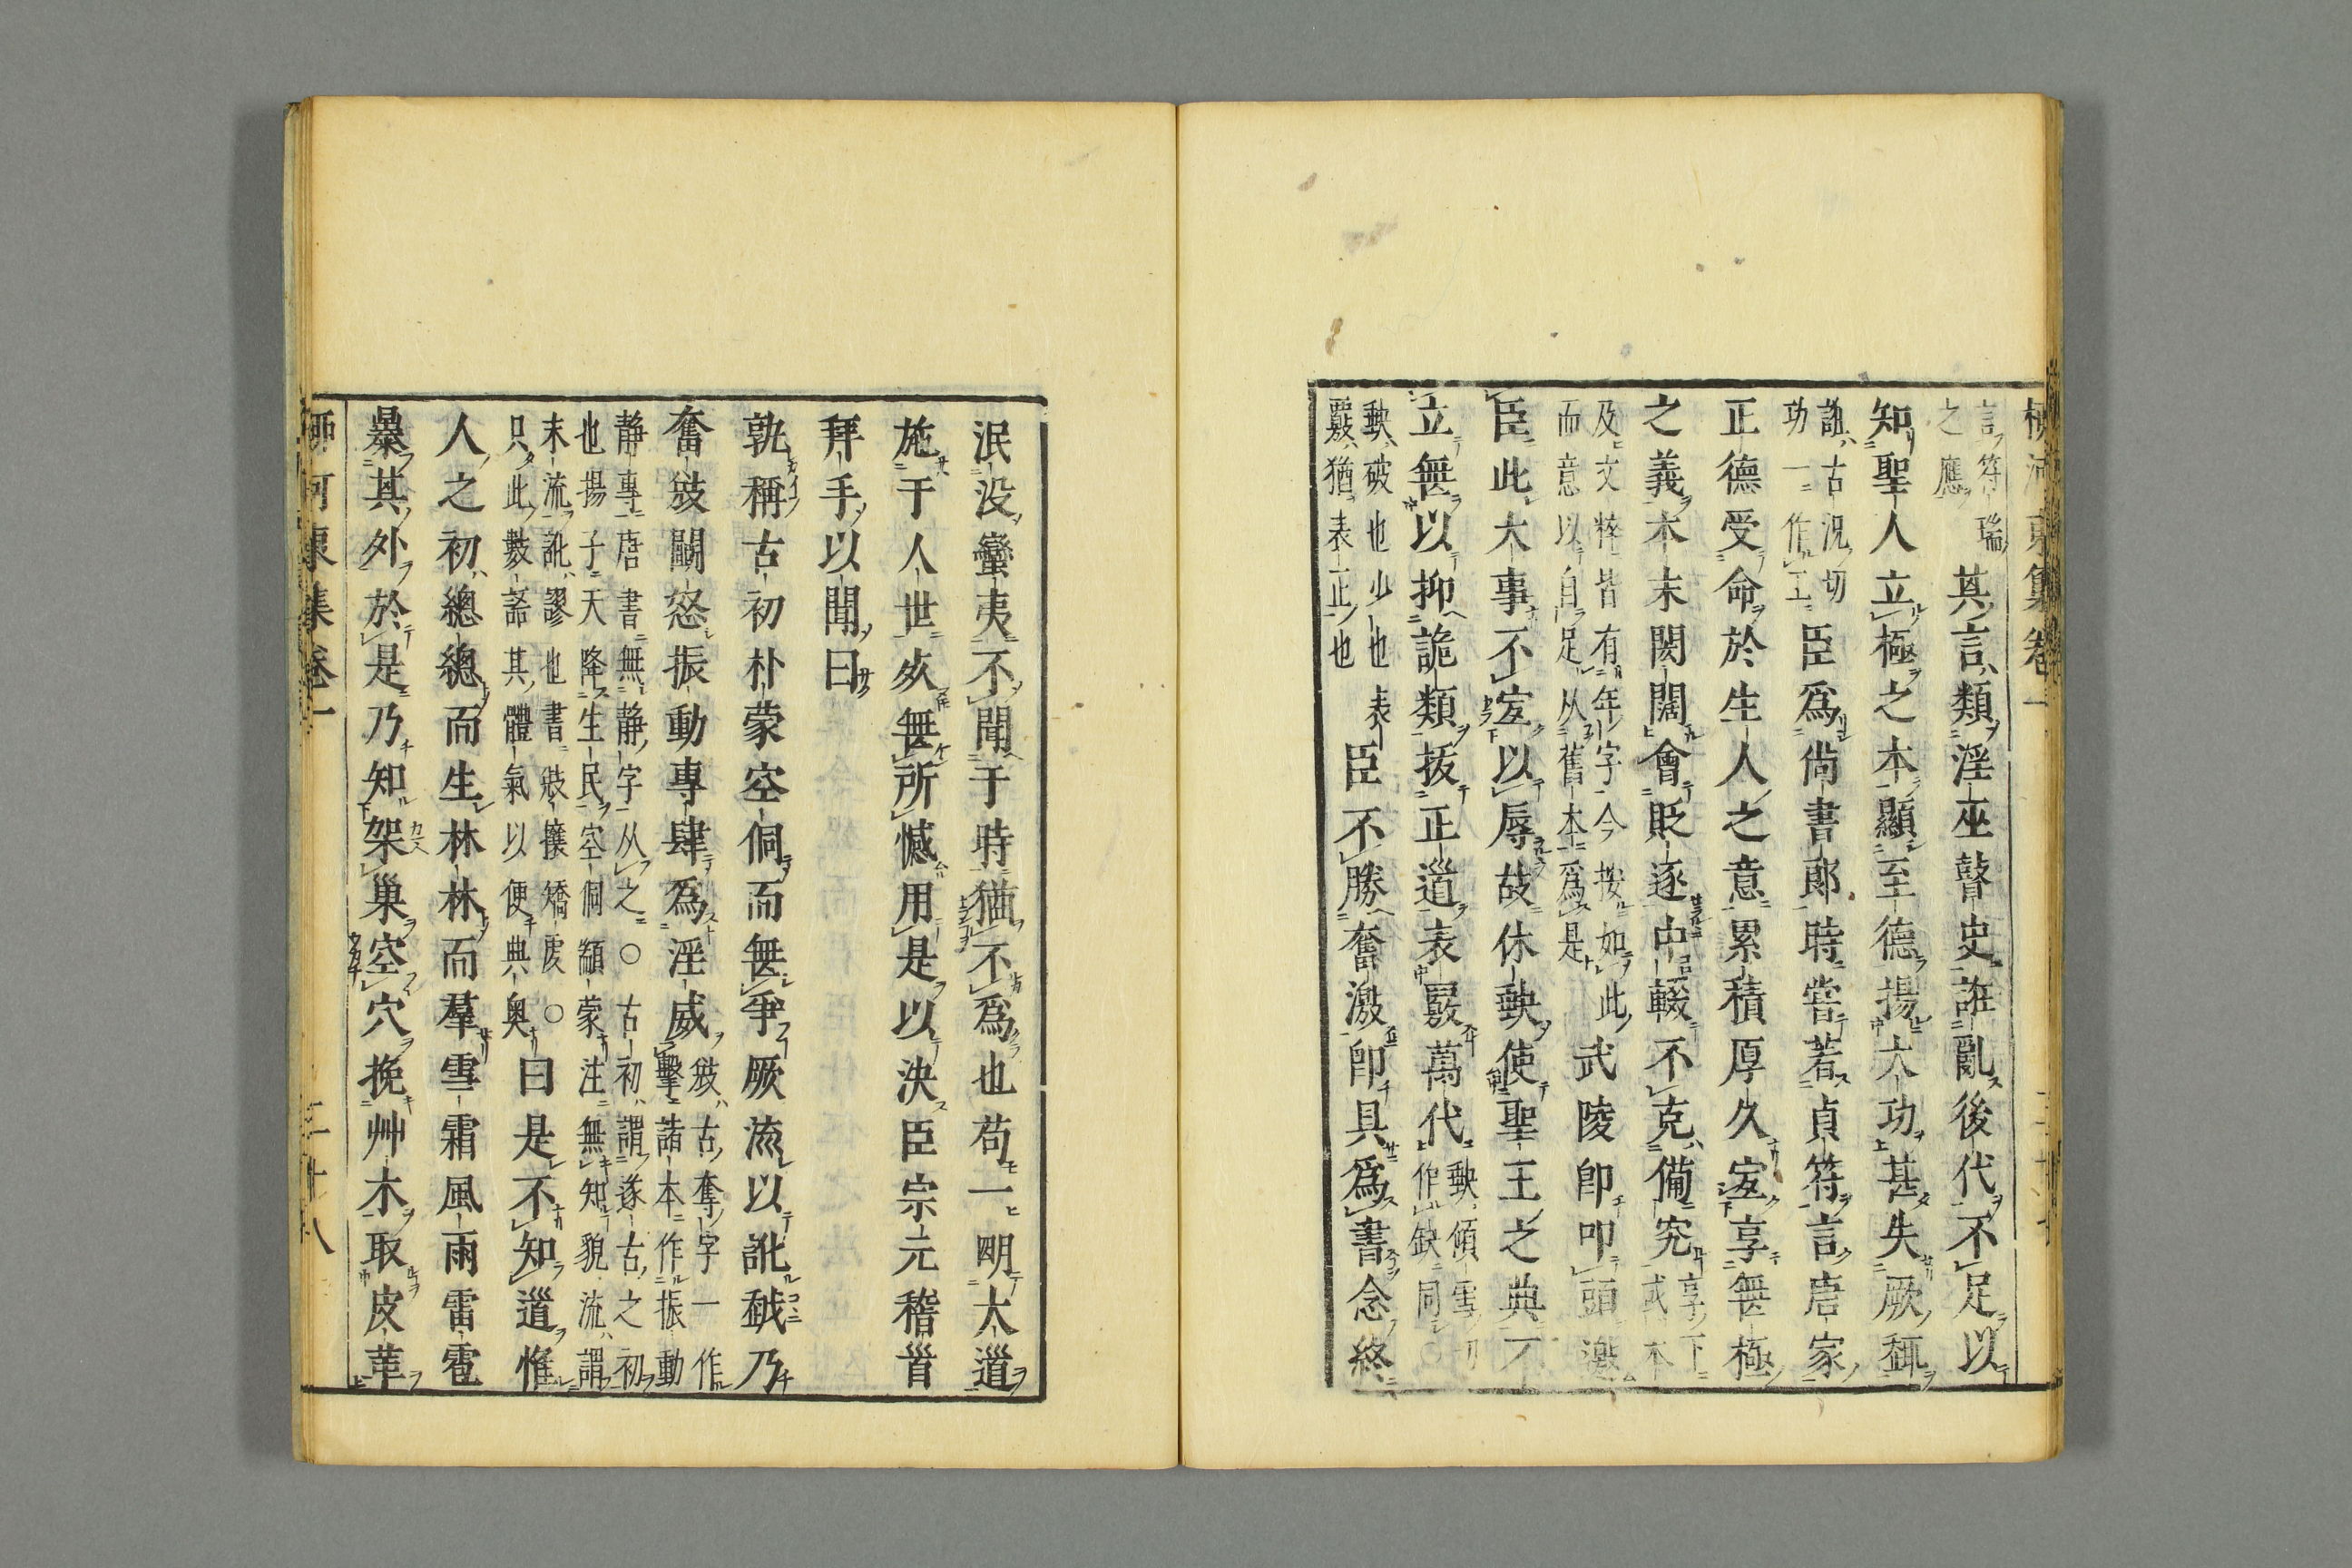 柳河東集卷一
言符瑞
之應
其言類淫巫瞽史誑亂後代不足以
知聖人立極之本顯至德揚大功甚失厥趣
誑古況切
功一作工
臣爲尙書郞時嘗著貞符言唐家
正德受命於生人之意累積厚久宐享無極
之義本末閎闊會貶逐中輟不克備究
享下
或本
及文粹皆有年字今按如此
而意以自足从舊本爲是
武陵卽叩頭邀
臣此大事不宐以辱故休缺使聖王之典不
立無以抑詭類拔正道表覈萬代
缺傾雪切
作缺同○
缺破也少也
覈猶表正也
表
臣不勝奮激卽具爲書念終
泯没蠻夷不聞于時猶不爲也苟一明大道
施于人世死無所憾用是以決臣宗元稽首
拜手以聞曰
孰稱古初朴蒙空侗而無爭厥流以訛越乃
奮敓鬬怒振動專肆爲淫威
敓古奪字一作
擊諸本作振動
靜專唐書無靜字从之○古初謂遂古之初
也揚子天降生民空侗顓蒙注無知貌流謂
末流訛謬也書敓攘矯虔○
只此數語其體氣以便典奧
曰是不知道惟
人之初總總而生林林而羣雪霜風雨雷雹
暴其外於是乃知架巢空穴挽艸木取皮革
柳河東集卷一
三十八